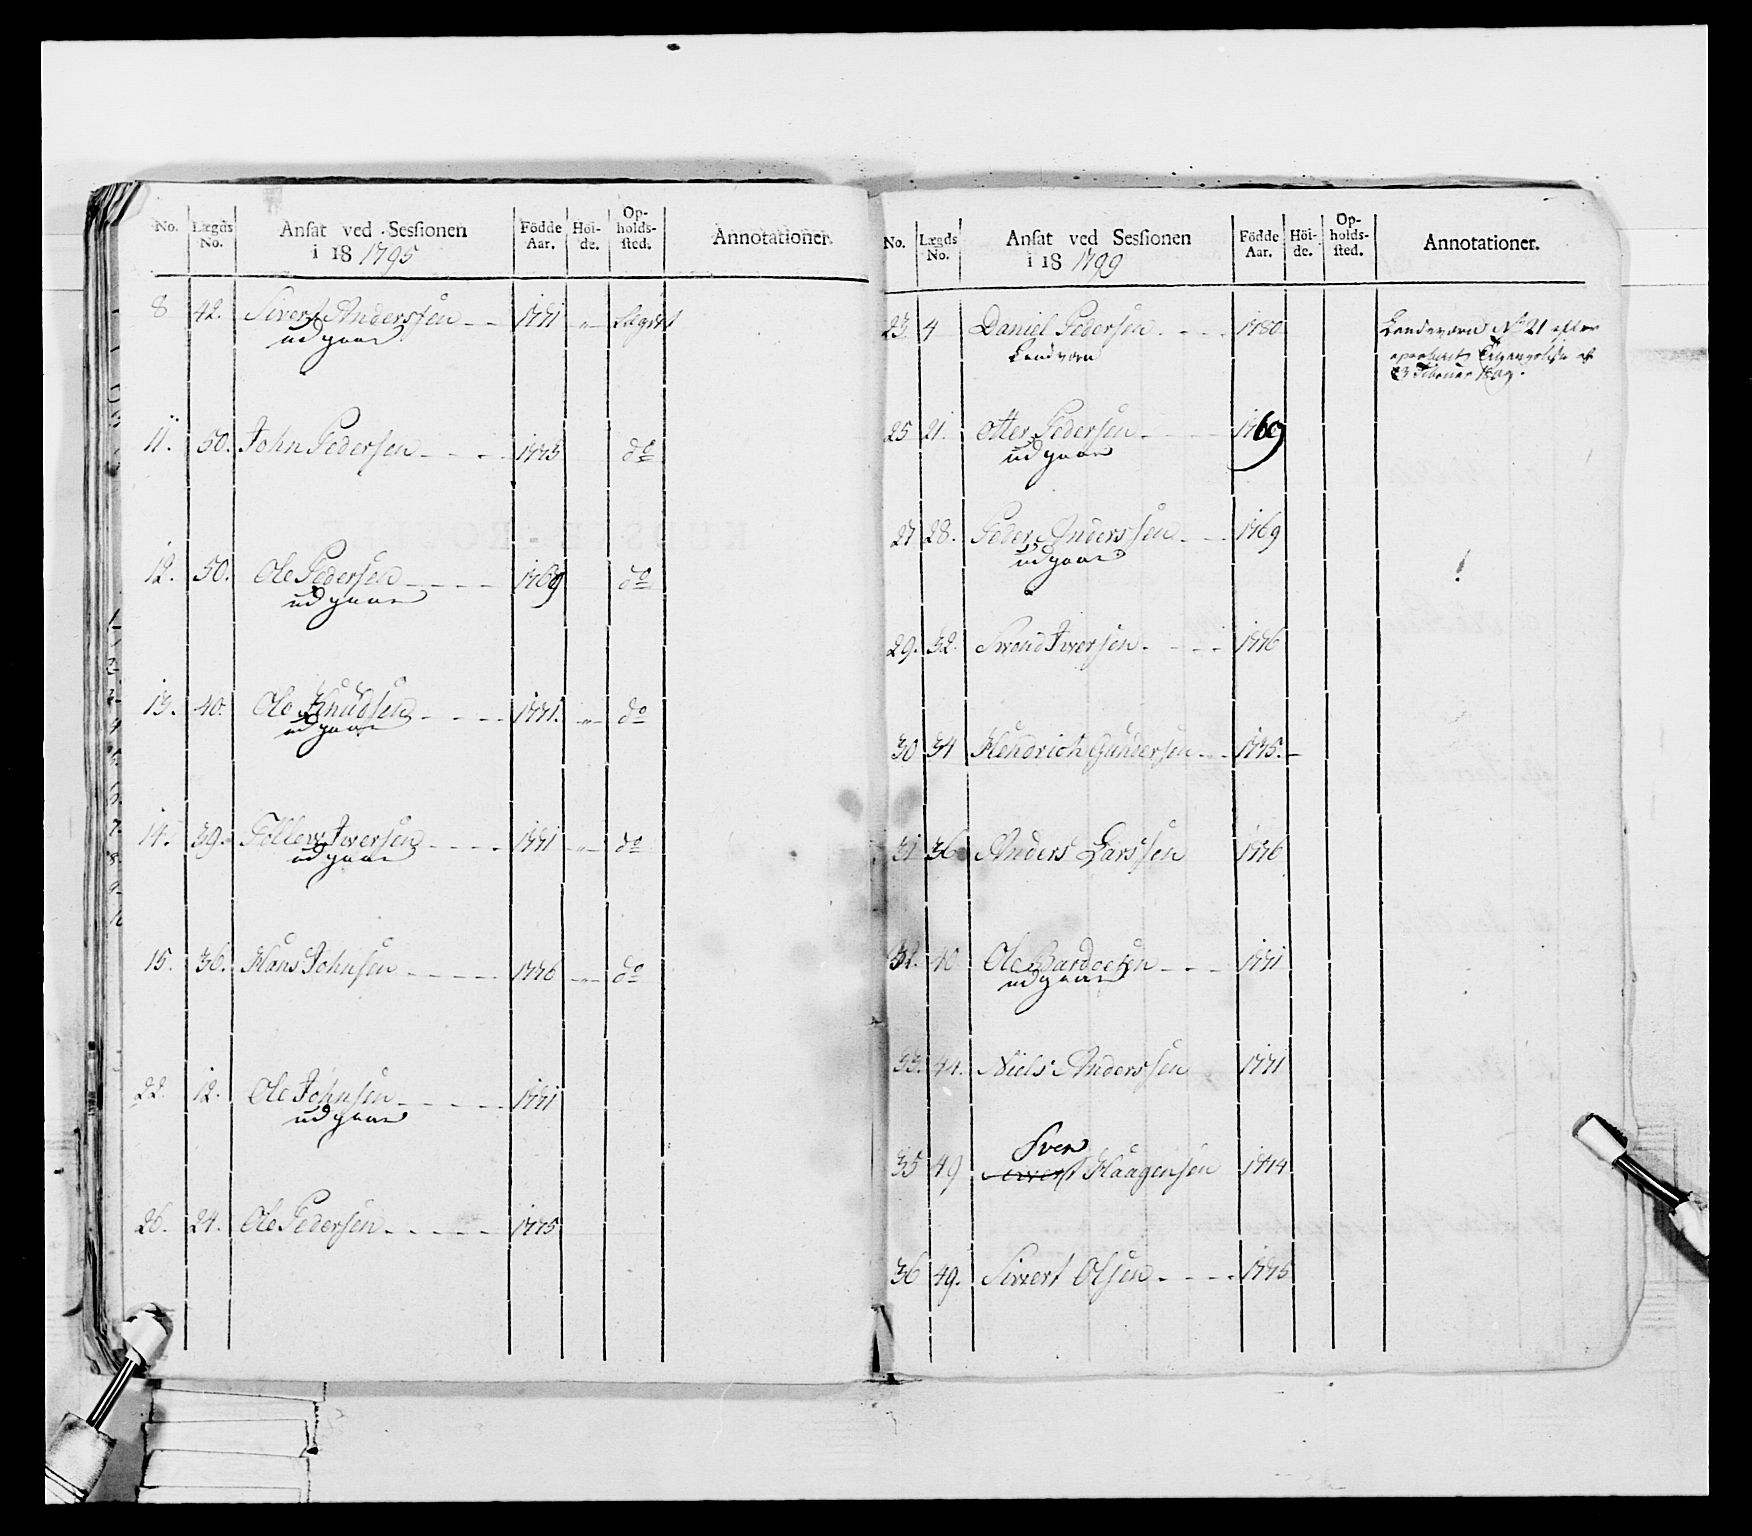 No. Lægds No. Ansat ved Sessionen i 18 1795 Födde Aar. Höi-de. Op-holds-sted. Annotationer.
8 42. Sivert Anderssen 1771 " Lægdet
udgaar
11. 50. John Pedersen 1773 do
12. 50. Ole Pedersen 1769 do
udgaar
13. 40. Ole Knudsen 1771. " do
udgaar
14. 39. Tollew Iversen 1771 " do
udgaar
15. 36. Hans Johnsen 1776 " do
22. 12. Ole Johnsen 1771
udgaar
26. 24. Ole Pedersen 1775
No. Lægds No. Ansat ved Sessionen i 18 1799 Födde Aar. Höi-de. Op-holds-sted. Annotationer.
23 4 Daniel Pedersen 1780 Landeværn No 21 efter
Landværn
23 Februar
25 21. Otter Pedersen 1769
udgaar
27 28. Peder Anderssen 1769
udgaar
29. 32. Svend Iversen 1776
30 34 Hendrich Gundersen 1775.
31 36 Anders Larssen 1776
32. 40 Ole 1771
udgaar
33. 44. Niels Anderssen 1771
Sven
35 49 Haagensen 1774
36 49. Sivert Olsen 1775